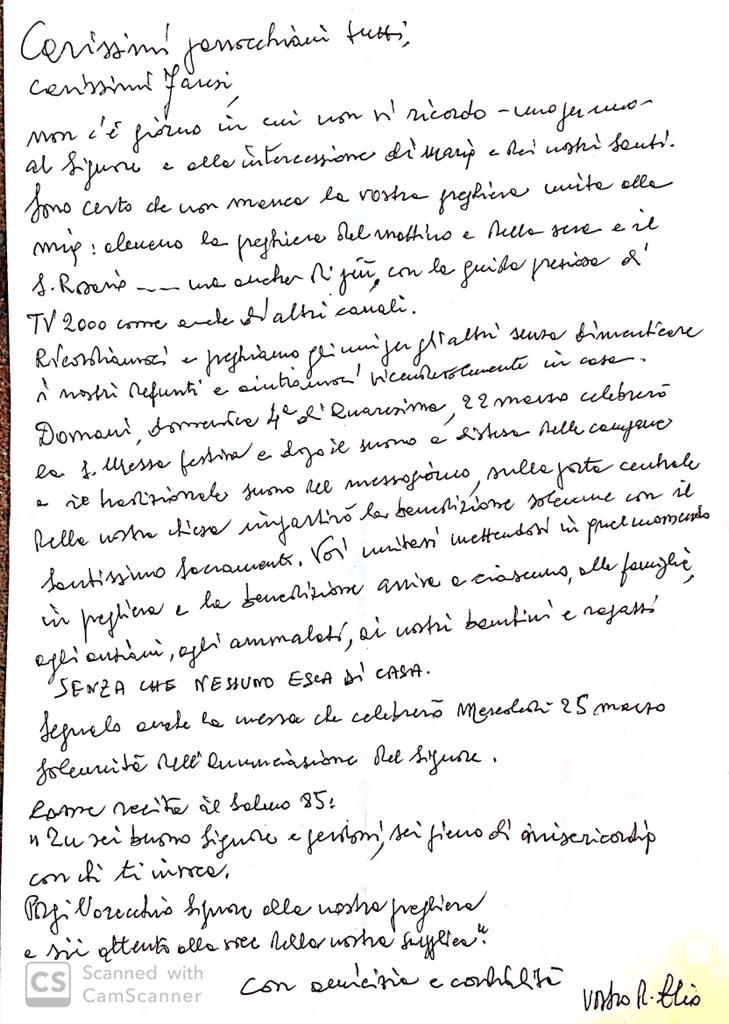 Carissimi parrocchiani tutti,
carissimi
non c'è giorno in cui non vi ricordo - uno per uno -
al Signore e alla intercessione di Maria e dei nostri Santi.
Sono certo che non manca la vostra preghiera unita alla
mia: almeno la preghiera del mattino e della sera e il
S. Rosario --- ma anche di più, con la guida preziosa di
TV 2000 come anche di altri canali.
Ricordiamoci e preghiamo gli uni per gli altri senza dimenticare
i nostri defunti e aiutiamoci vicendevolmente in casa.
Domani, domenica 4ª di Quaresima, 22 marzo celebrerò
la S. Messa festiva e dopo il suono a distesa delle campane
e il tradizionale suono del mezzogiorno, sulla porta centrale
della nostra chiesa impartirò la benedizione solenne con il
Santissimo Sacramento. Voi unitevi mettendovi in quel momento
in preghiera e la benedizione arriva a ciascuno, alle famiglie,
agli anziani, agli ammalati, ai nostri bambini e ragazzi
SENZA CHE NESSUNO ESCA DI CASA.
Segnalo anche la messa che celebrerò Mercoledì 25 marzo
solennità dell'Annunciazione del Signore.
Come recita il Salmo 85:
"Tu sei buono Signore e perdoni, sei pieno di misericordia
con chi ti invoca.
Porgi l'orecchio Signore alla nostra preghiera
e sii attento alla voce della nostra supplica".
Con amicizia e cordialità
vostro
CS Scanned with
CamScanner